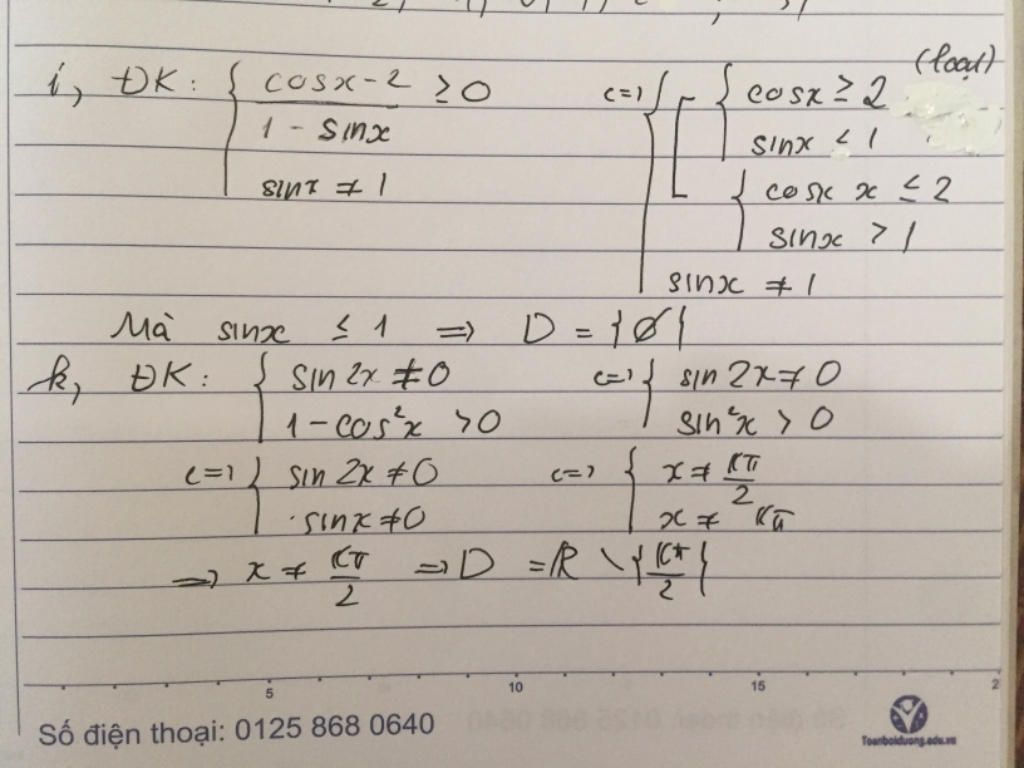 i, ĐK: { (cosx-2)/(1 - sinx) ≥ 0 <=> { [ { cosx ≥ 2 (loại)
sinx < 1
sinx ≠ 1 { cosx x ≤ 2
sinx > 1
sinx ≠ 1
Mà sinx ≤ 1 => D = {∅}
k, ĐK: { sin 2x ≠ 0 <=> { sin 2x ≠ 0
1 - cos²x > 0 sin²x > 0
<=> { sin 2x ≠ 0 <=> { x ≠ kπ/2
sinx ≠ 0 x ≠ kπ
=> x ≠ kπ/2 => D = R \ {kπ/2}
5 10 15 2
Số điện thoại: 0125 868 0640
Toanboiduong.edu.vn